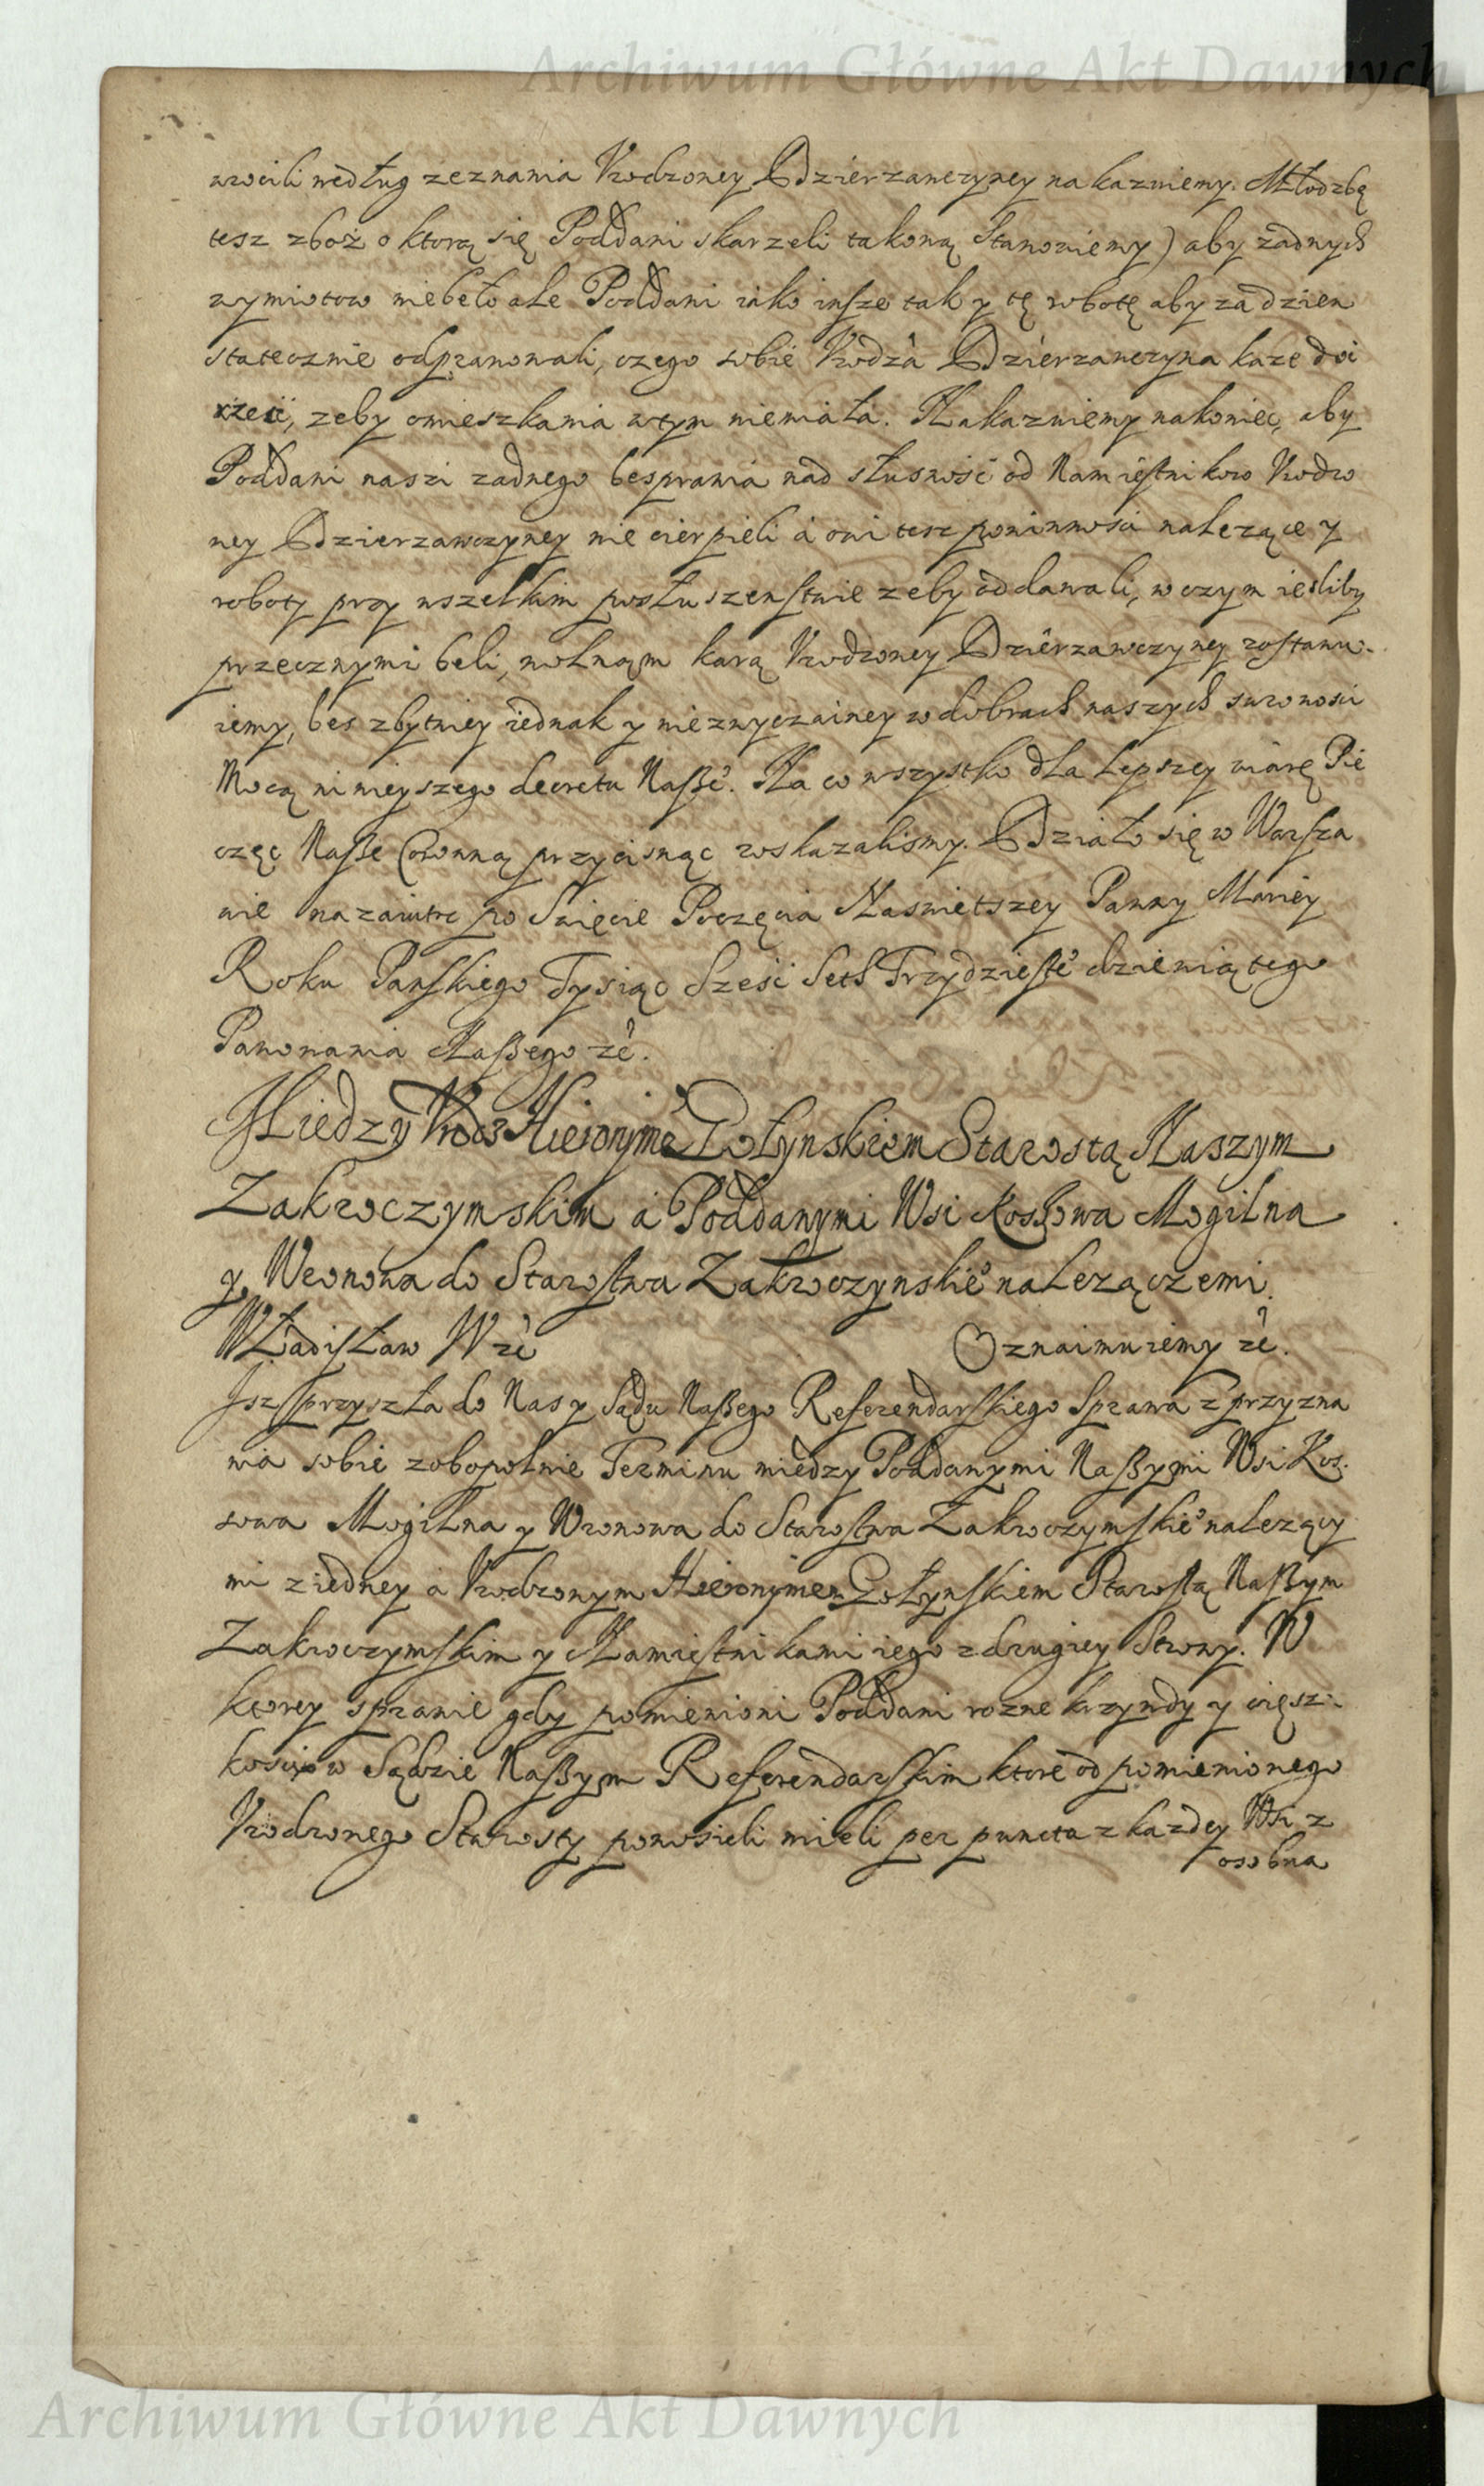 Archiwum Główne Akt Dawnych
wrocili według zeznania Vrodzoney Dzierzawczyney nakazuiemy. Młodzbę
tesz zboż o ktorą się Poddani skarzeli takową stanowiemy) aby zadnych
wymiotow niebeło ale Poddani iako insze tak y tę robotę aby za dzien
statecznie odprawowali, czego sobie Vrodza Dzierzawczyna kaze doi
rzeć, zeby omieszkania wtym niemiała. Nakazuiemy nakoniec, aby
Poddani naszi zadnego besprawia nad słusność od Namiestnikow Vrodzo
ney Dzierzawczyney nie cierpieli á oni tesz powinnosci nalezące y
roboty przy wszelkim posłuszenstwie zeby oddawali, w czym iesliby
przecznymi beli, wolnąm karą Vrodzoney Dzierzawczyney zostawu-
iemy, bes zbytniey iednak y niezwyczainey w dobrach naszych surowosci
Mocą ninieyszego decretu Nasze⁰. Na co wszystko dla Lepszey wiarę Pie
częc Nasze Coronną przycisnąc roskazalismy. Działo się w Warsza
wie nazaiutrz po Swięcie Poczęcia Naswietszey Panny Mariey
Roku Panskiego Tysiąc Sześć Seth Trzydzieste⁰ dziewiątego
Panowania Naszego zć.
Miedzy Vrodz Hieronyme Gołynskiem Starostą Naszym
Zakroczymskim á Poddanymi Wsi Kossowa Mogilna
y Weonowa do Starostwa Zakroczynskie⁰ nalezączemi.
Władisław IV zć Oznaimuiemy zć.
Isz przyszła do Nas y Sądu Naszego Referendarskiego Sprawa z przyzna
nia sobie zobopolnie Terminu miedzy Poddanymi Naszymi Wsi Kos-
sowa Mogilna y Wronowa do Starostwa Zakroczymskie⁰ nalezący
mi z iedney á Vrodzonym Hieronymem Gołynskiem Starostą Naszym
Zakroczymskim y Namiestnikami iego z drugiey Strony. W
ktorey sprawie gdy pomienioni Poddani rozne krzywdy y cięsz-
kosci w Sądzie Naszym Referendarskim ktore od pomienionego
Vrodzonego Starosty ponosieli mieli per puncta z kazdey Wsi z
osobna
Archiwum Główne Akt Dawnych